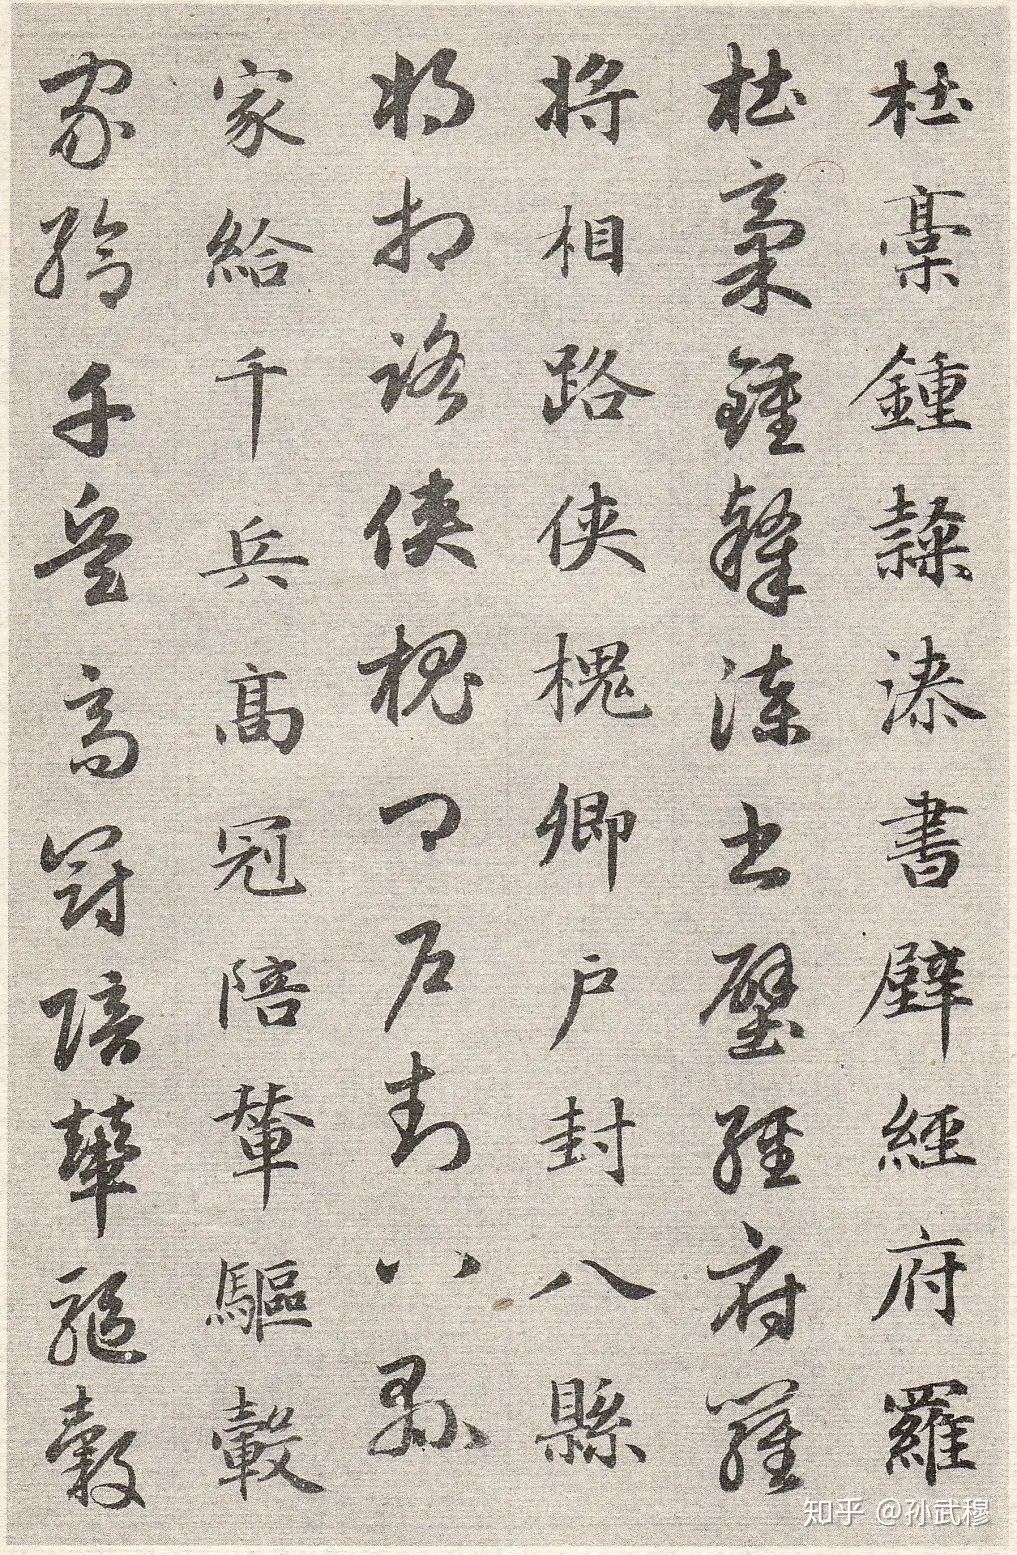 杜稾鍾隸漆書壁經府羅
杜稾鍾隸漆書壁經府羅
將相路俠槐卿戶封八縣
將相路俠槐卿戶封八縣
家給千兵高冠陪輦驅轂
家給千兵高冠陪輦驅轂
知乎 @孙武穆